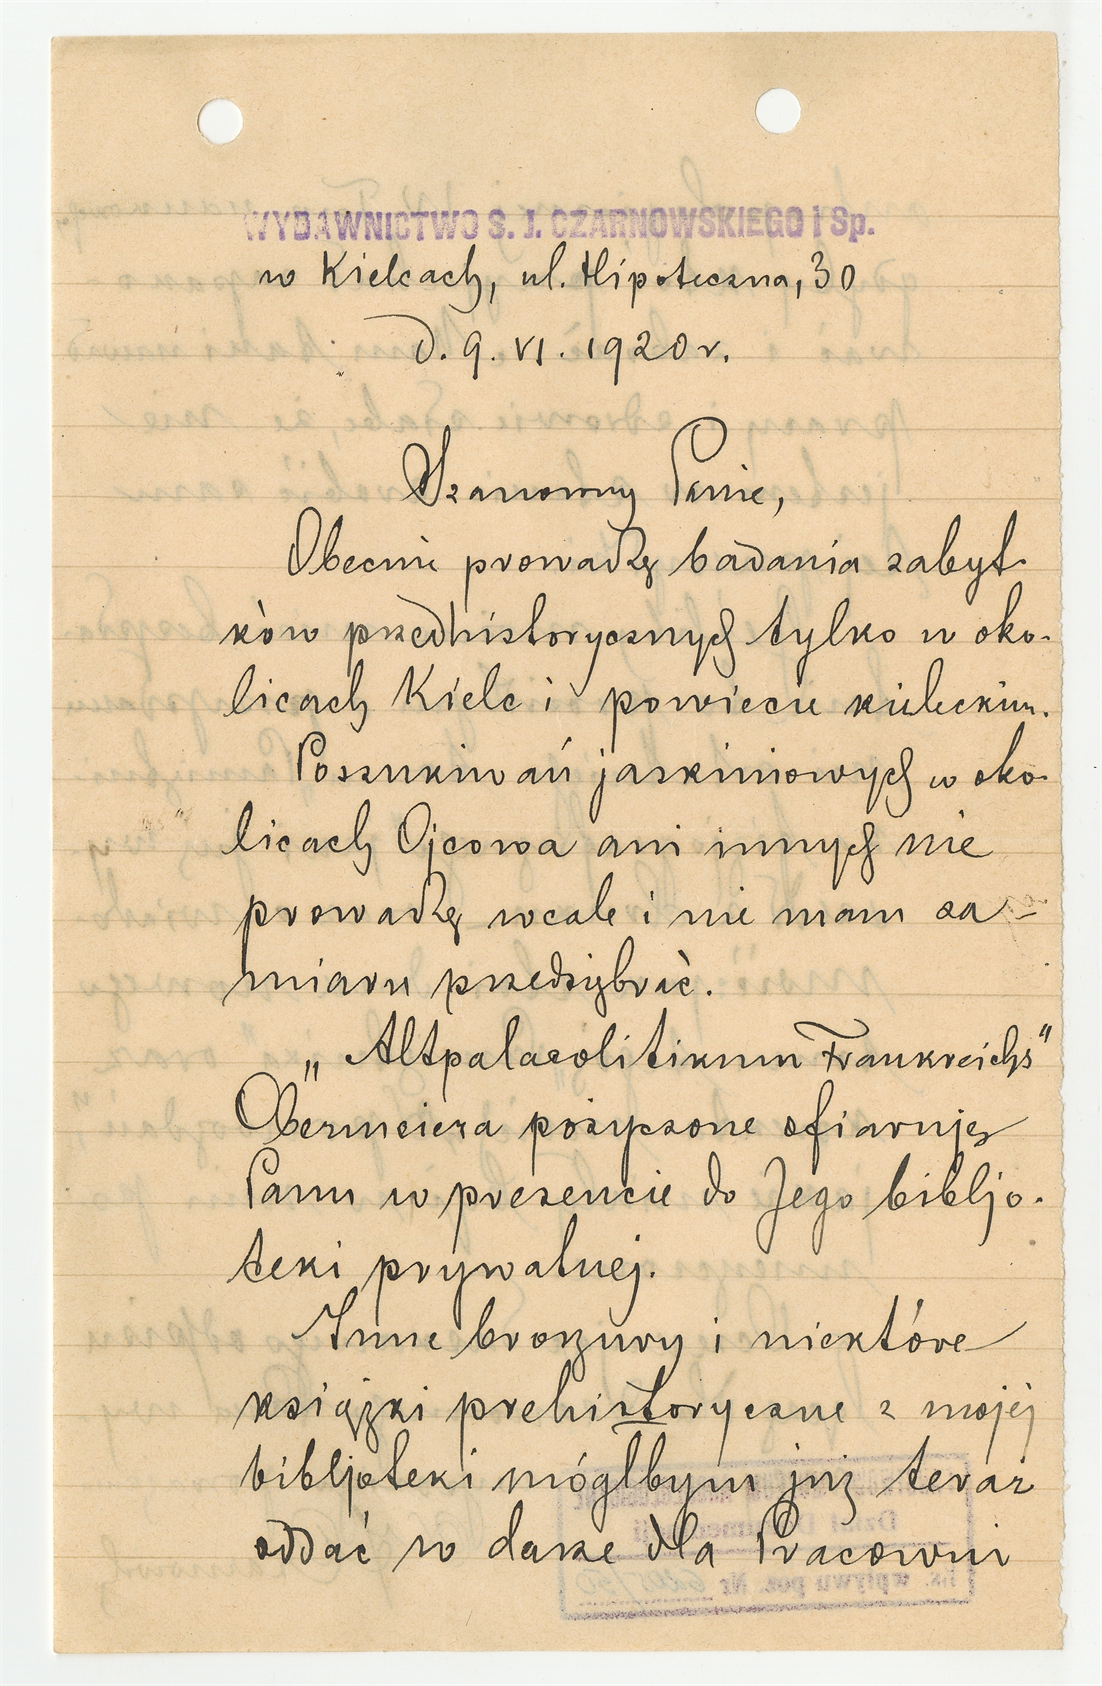 WYDAWNICTWO S. J. CZARNOWSKIEGO i Sp.
w Kielcach, ul. Hipoteczna, 30
D. 9. VI. 1920 r.
Szanowny Panie,
Obecnie prowadzę badania zabyt-
ków przedhistorycznych tylko w oko-
licach Kielc i powiecie kieleckim.
Poszukiwań jaskiniowych w oko-
licach Ojcowa ani innych nie
prowadzę wcale i nie mam za-
miaru przedsiębrać.
„Altpalaeolitikum Frankreichs"
Obermeiera pożyczone ofiaruję
Panu w prezencie do Jego bibljo-
teki prywatnej.
Inne broszury i niektóre
książki prehistoryczne z mojej
bibljoteki mógłbym już teraz
oddać w darze dla Pracowni